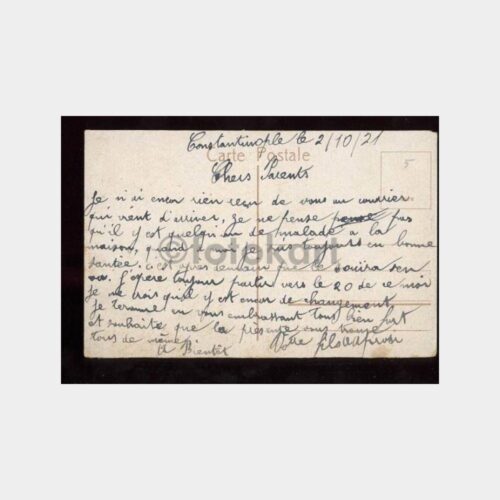 Constantinople le 2/10/21
Carte Postale
5
Chers Parents
Je n'ai encor rien reçu de vous au courrier
qui vient d'arriver, je ne pense pas
qu'il y est quelqu'un de malade a la
maison, quand a moi je suis toujours en bonne
santée, c'est que le
J'espère toujour partir vers le 20 de ce mois
je ne crois qu'il y est encor de changement,
je termine en vous embrassant tous bien fort
et souhaite que la présente vous trouve
tous de même.
A Bientôt
Votre fils
©fotokart